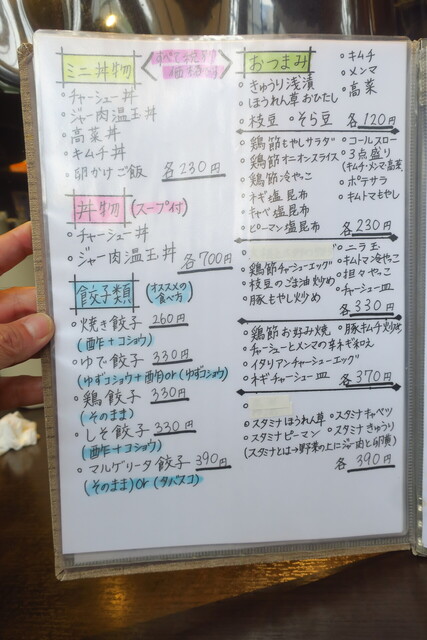 ミニ丼物
すべて税込み価格です
・チャーシュー丼
・ジャー肉温玉丼
・高菜丼
・キムチ丼
・卵かけご飯 各230円
丼物 (スープ付)
・チャーシュー丼
・ジャー肉温玉丼 各700円
餃子類 (オススメの食べ方)
・焼き餃子 260円
(酢+コショウ)
・ゆで餃子 330円
(ゆずコショウ+酢) or (ゆずコショウ)
・鶏餃子 330円
(そのまま)
・しそ餃子 330円
(酢+コショウ)
・マルゲリータ餃子 390円
(そのまま) or (タバスコ)
おつまみ
・きゅうり浅漬
・ほうれん草おひたし
・枝豆 ・そら豆
・キムチ
・メンマ
・高菜
各120円
・鶏節もやしサラダ
・鶏節オーオンスライス
・鶏節冷やっこ
・ネギ塩昆布
・キャベ塩昆布
・ピーマン塩昆布
・コールスロー
・3点盛り
(キムチ・メンマ・高菜)
・ポテサラ
・キムトマもやし
各230円
・鶏節チャーシューエッグ
・枝豆のごま油炒め
・豚もやし炒め
・ニラ玉
・キムトマ冷やっこ
・担々やっこ
・チャーシュー皿
各330円
・鶏節お好み焼 ・豚キムチ炒め
・チャーシューとメンマの辛ネギ和え
・イタリアンチャーシューエッグ
・ネギチャーシュー皿 各370円
・スタミナほうれん草 ・スタミナキャベツ
・スタミナピーマン ・スタミナきゅうり
(スタミナとは→野菜の上にジャー肉と卵黄)
各390円